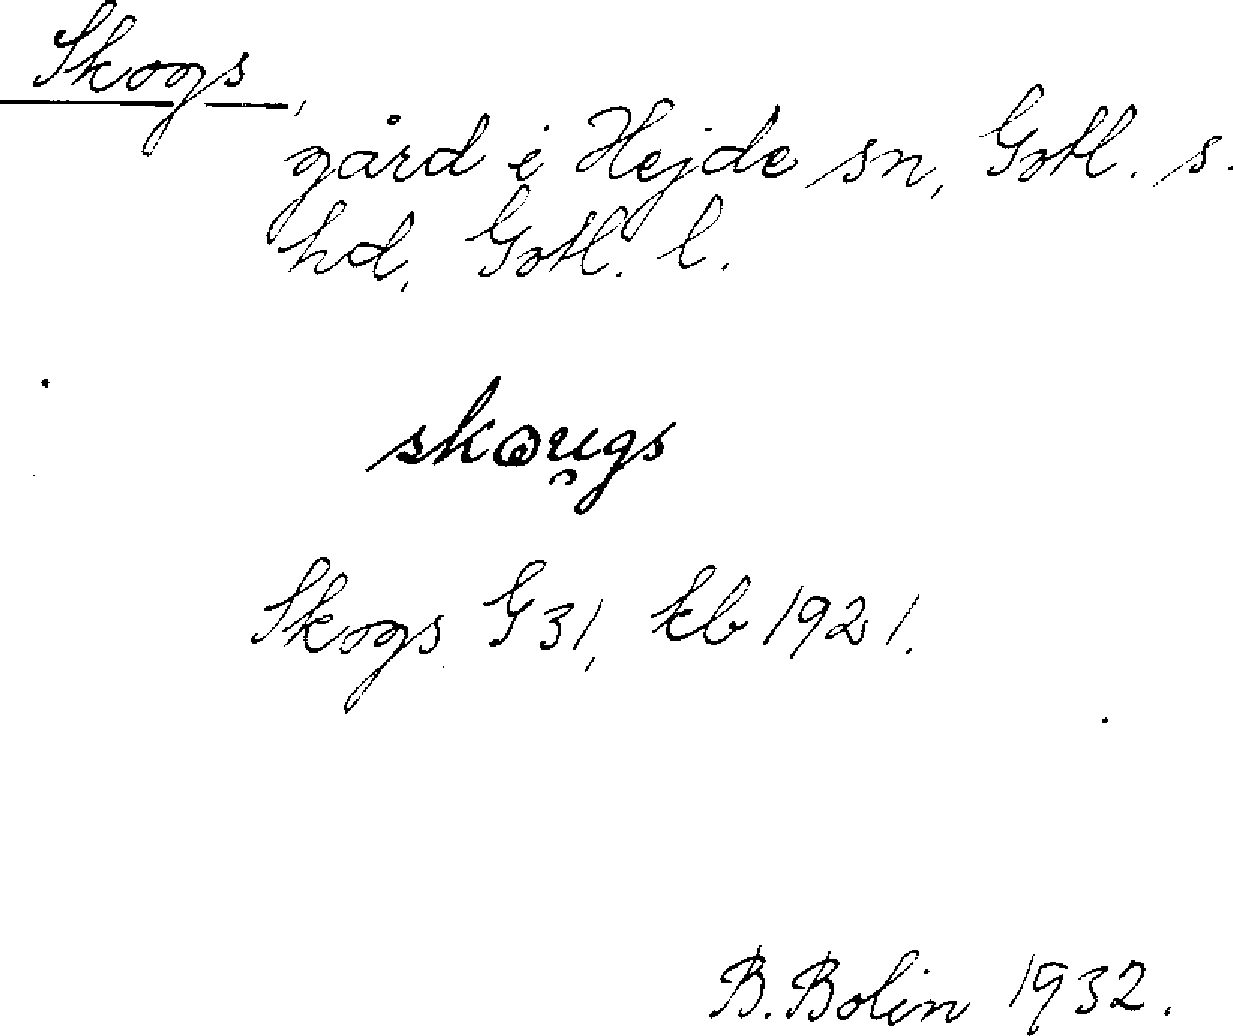 Skogs,
gård i Hejde sn, Gotl. s.
hd, Gotl. l.
skɷu̯gs
Skogs G 31, kb 1921.
B. Bolin 1932.